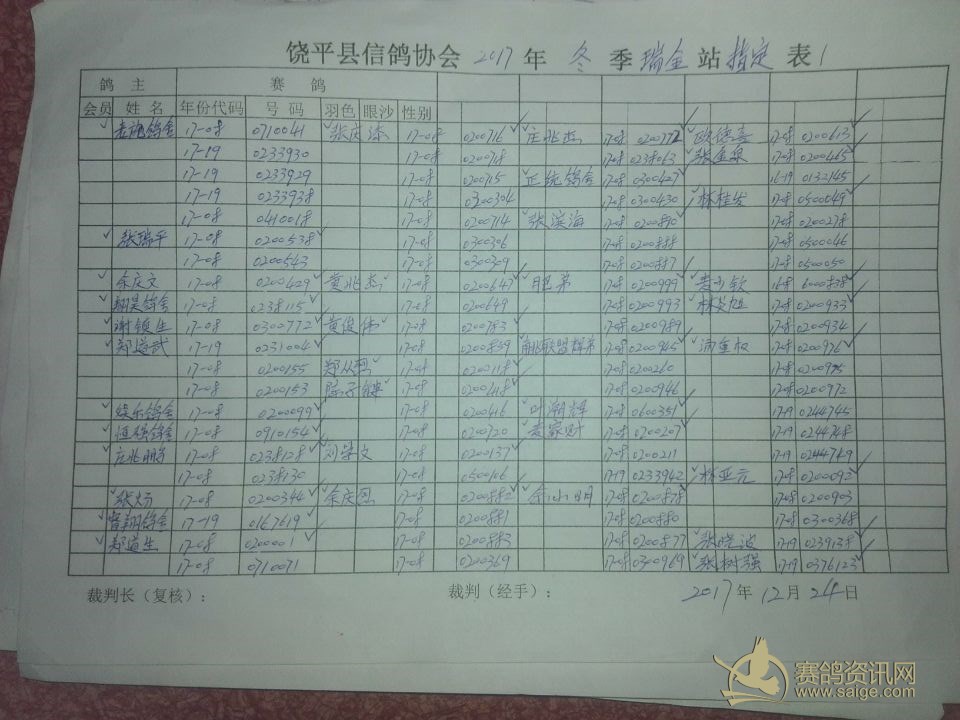 饶平县信鸽协会 2017 年 冬 季 瑞金 站 指定 表 1
鸽 主 赛 鸽
会员 姓 名 年份代码 号 码 羽色 眼沙 性别
17-08 0710041 张庆添 17-08 0200716 庄兆杰 17-08 0200772 欧德喜 17-08 0200613
17-19 0233930 17-08 0200718 17-08 0238063 张金泉 17-08 0200465
17-19 0233929 17-08 0200715 正统鸽舍 17-08 0300427 16-19 0132145
17-19 0233938 17-08 0300304 17-08 0300430 林桂发 17-08 0500049
17-08 0410018 17-08 0200714 张滨海 17-08 0200890 17-08 0200278
张瑞平 17-08 0200538 17-08 0300306 17-08 0200888 17-08 0500046
17-08 0200543 17-08 0300309 17-08 0200887 17-08 0500050
余庆文 17-08 0200429 黄兆杰 17-08 0200647 肥弟 17-08 0200999
翔昊鸽舍 17-08 0238115 17-08 0200649 17-08 0200993 17-08 0200933
谢镇生 17-08 0300772 黄俊伟 17-08 0200783 17-08 0200989 17-08 0200934
郑道武 17-19 0231004 17-08 0200839 17-08 0200945 17-08 0200976
17-08 0200155 17-08 17-08 0200260 17-08
17-08 0200153 17-08 17-08 0200946 17-08 0200972
娱乐鸽舍 17-08 0200099 17-08 0200416 叶潮辉 17-08 0600351 17-19 0244745
恒强鸽舍 17-08 0910154 17-08 0200720 麦家财 17-08 0200207 17-19 0244748
庄兆鹏 17-08 0238128 刘荣文 17-08 0200137 17-08 0200211 17-19 0244749
17-08 0238130 17-08 0500106 17-19 0233942 林亚元 17-08 0200092
17-08 0200344 余庆国 17-08 0200882 余小明 17-08 0200878 17-08 0200903
17-19 0167619 17-08 0200881 17-08 0200880 17-08 0300368
郑道生 17-08 0200001 17-08 0200883 17-08 0200877 张晓波 17-19 0239138
17-08 0710071 17-08 0200369 17-08 0300969 张树强 17-19 0376123
裁判长（复核）： 裁判（经手）： 2017 年 12 月 24 日
赛鸽资讯网
www.saige.com